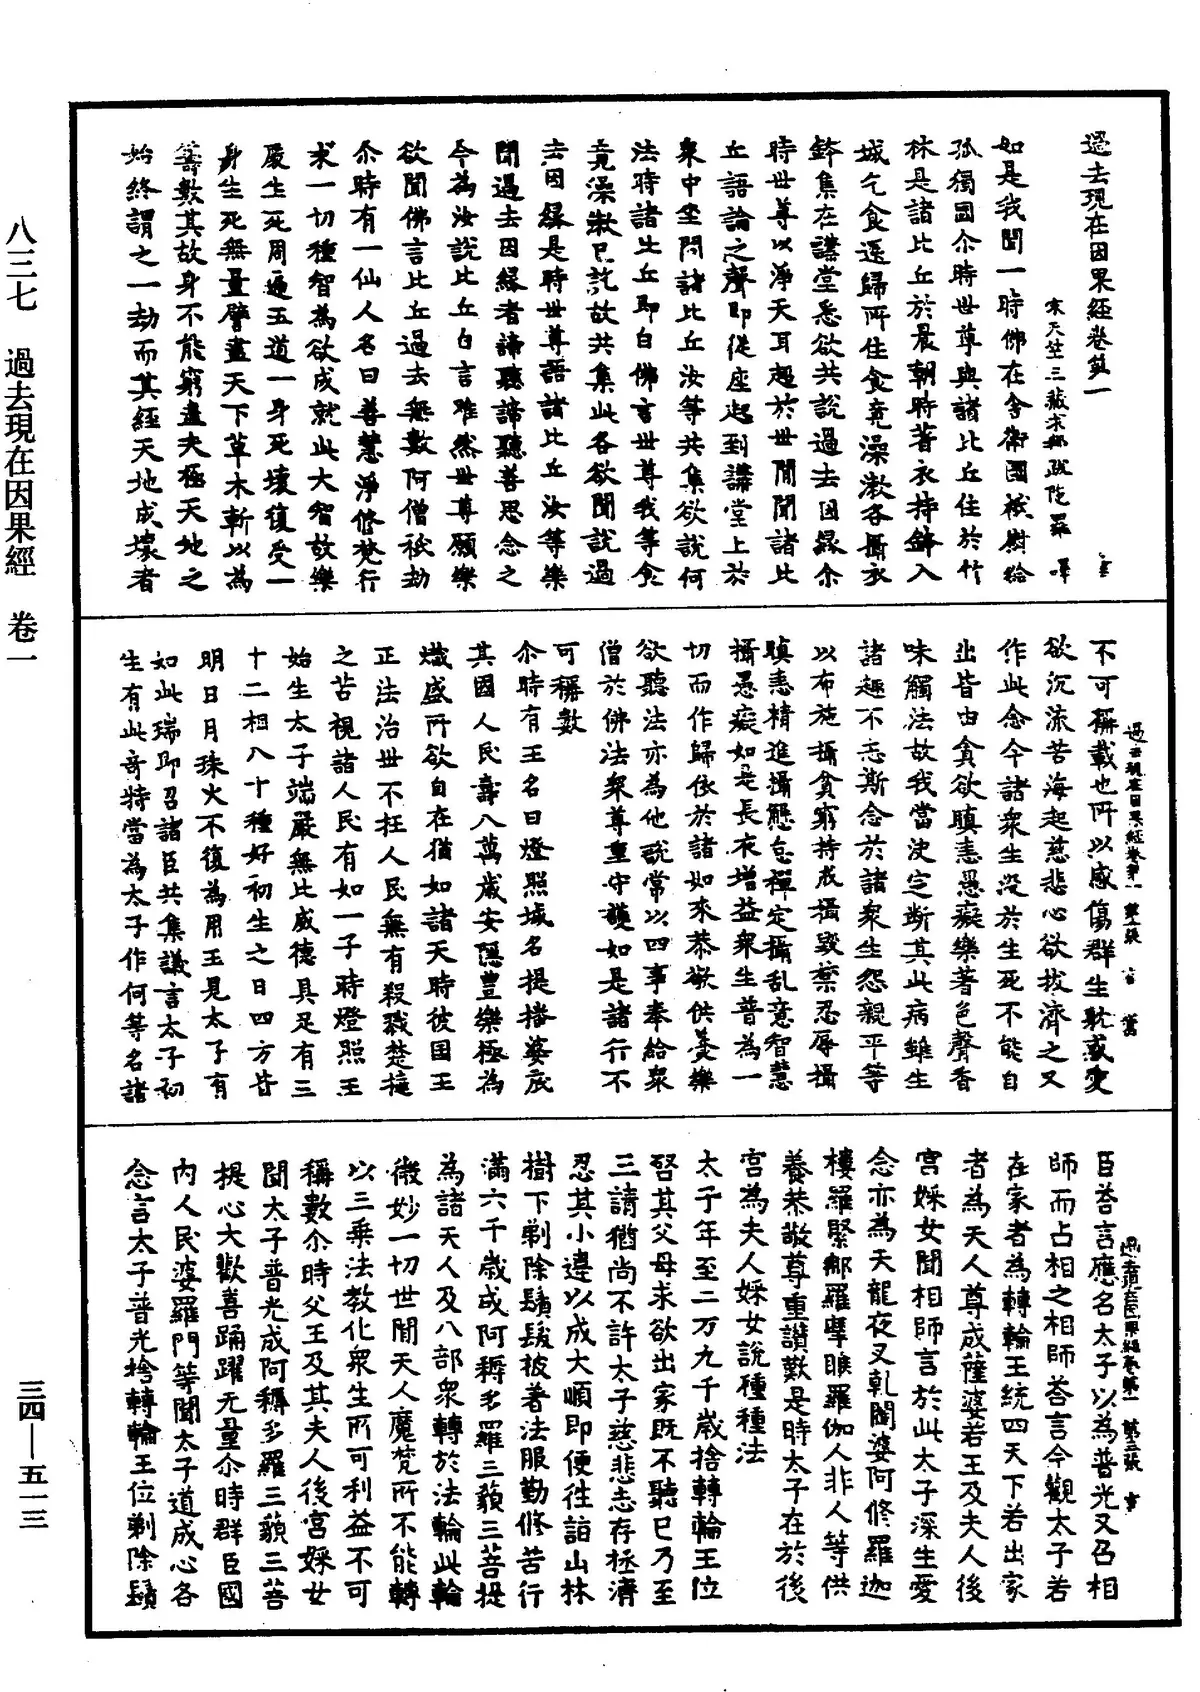 過去現在因果經卷第一
宋天竺三藏求那跋陀羅 譯
如是我聞一時佛在舍衛國祇樹給
孤獨園尒時世尊與諸比丘住於竹
林是諸比丘於晨朝時著衣持鉢入
城乞食還歸所住食竟澡漱各攝衣
鉢集在講堂悉欲共說過去因緣尒
時世尊以淨天耳超於世間聞諸比
丘語論之聲即從座起到講堂上於
衆中坐問諸比丘汝等共集欲說何
法時諸比丘即白佛言世尊我等食
竟澡漱已訖故共集此各欲聞說過
去因緣是時世尊語諸比丘汝等樂
聞過去因緣者諦聽諦聽善思念之
今為汝說比丘白言唯然世尊願樂
欲聞佛言比丘過去無數阿僧祇劫
尒時有一仙人名曰善慧淨修梵行
求一切種智為欲成就此大智故樂
處生死周遍五道一身死壞復受一
身生死無量譬盡天下草木斬以為
籌數其故身不能窮盡夫極天地之
始終謂之一劫而其經天地成壞者
過去現在因果經卷第一 第二張
不可稱載也所以感傷群生耽惑愛
欲沉流苦海起慈悲心欲拔濟之又
作此念今諸衆生没於生死不能自
出皆由貪欲瞋恚愚癡樂著色聲香
味觸法故我當決定断其此病雖生
諸趣不忘斯念於諸衆生怨親平等
以布施攝貪窮持戒攝毀禁忍辱攝
瞋恚精進攝懈怠禪定攝乱意智慧
攝愚癡如是長夜增益衆生普為一
切而作歸依於諸如來恭敬供養樂
欲聽法亦為他說常以四事奉給衆
僧於佛法衆尊重守護如是諸行不
可稱數
尒時有王名曰燈照城名提播婆底
其國人民壽八萬歲安隱豊樂極為
熾盛所欲自在猶如諸天時彼国王
正法治世不枉人民無有殺戮楚撻
之苦視諸人民有如一子時燈照王
始生太子端嚴無比威德具足有三
十二相八十種好初生之日四方皆
明日月珠火不復為用王見太子有
如此瑞即召諸臣共集議言太子初
生有此奇特當為太子作何等名諸
過去現在因果經卷第一 第三張
臣荅言應名太子以為普光又召相
師而占相之相師荅言今觀太子若
在家者為轉輪王統四天下若出家
者為天人尊成薩婆若王及夫人後
宮婇女聞相師言於此太子深生愛
念亦為天龍夜叉乹闥婆阿修羅迦
樓羅緊那羅摩睺羅伽人非人等供
養恭敬尊重讃歎是時太子在於後
宮為夫人婇女說種種法
太子年至二万九千歲捨轉輪王位
啓其父母求欲出家既不聽已乃至
三請猶尚不許太子慈悲志存拯濟
忍其小違以成大順即便往詣山林
樹下剃除鬚髮被著法服勤修苦行
滿六千歲成阿耨多羅三藐三菩提
為諸天人及八部衆轉於法輪此輪
微妙一切世間天人魔梵所不能轉
以三乘法教化衆生所可利益不可
稱數尒時父王及其夫人後宮婇女
聞太子普光成阿耨多羅三藐三菩
提心大歡喜踊躍无量尒時群臣國
內人民婆羅門等聞太子道成心各
念言太子普光捨轉輪王位剃除鬚
八三七 過去現在因果經 卷一
三四—五一三